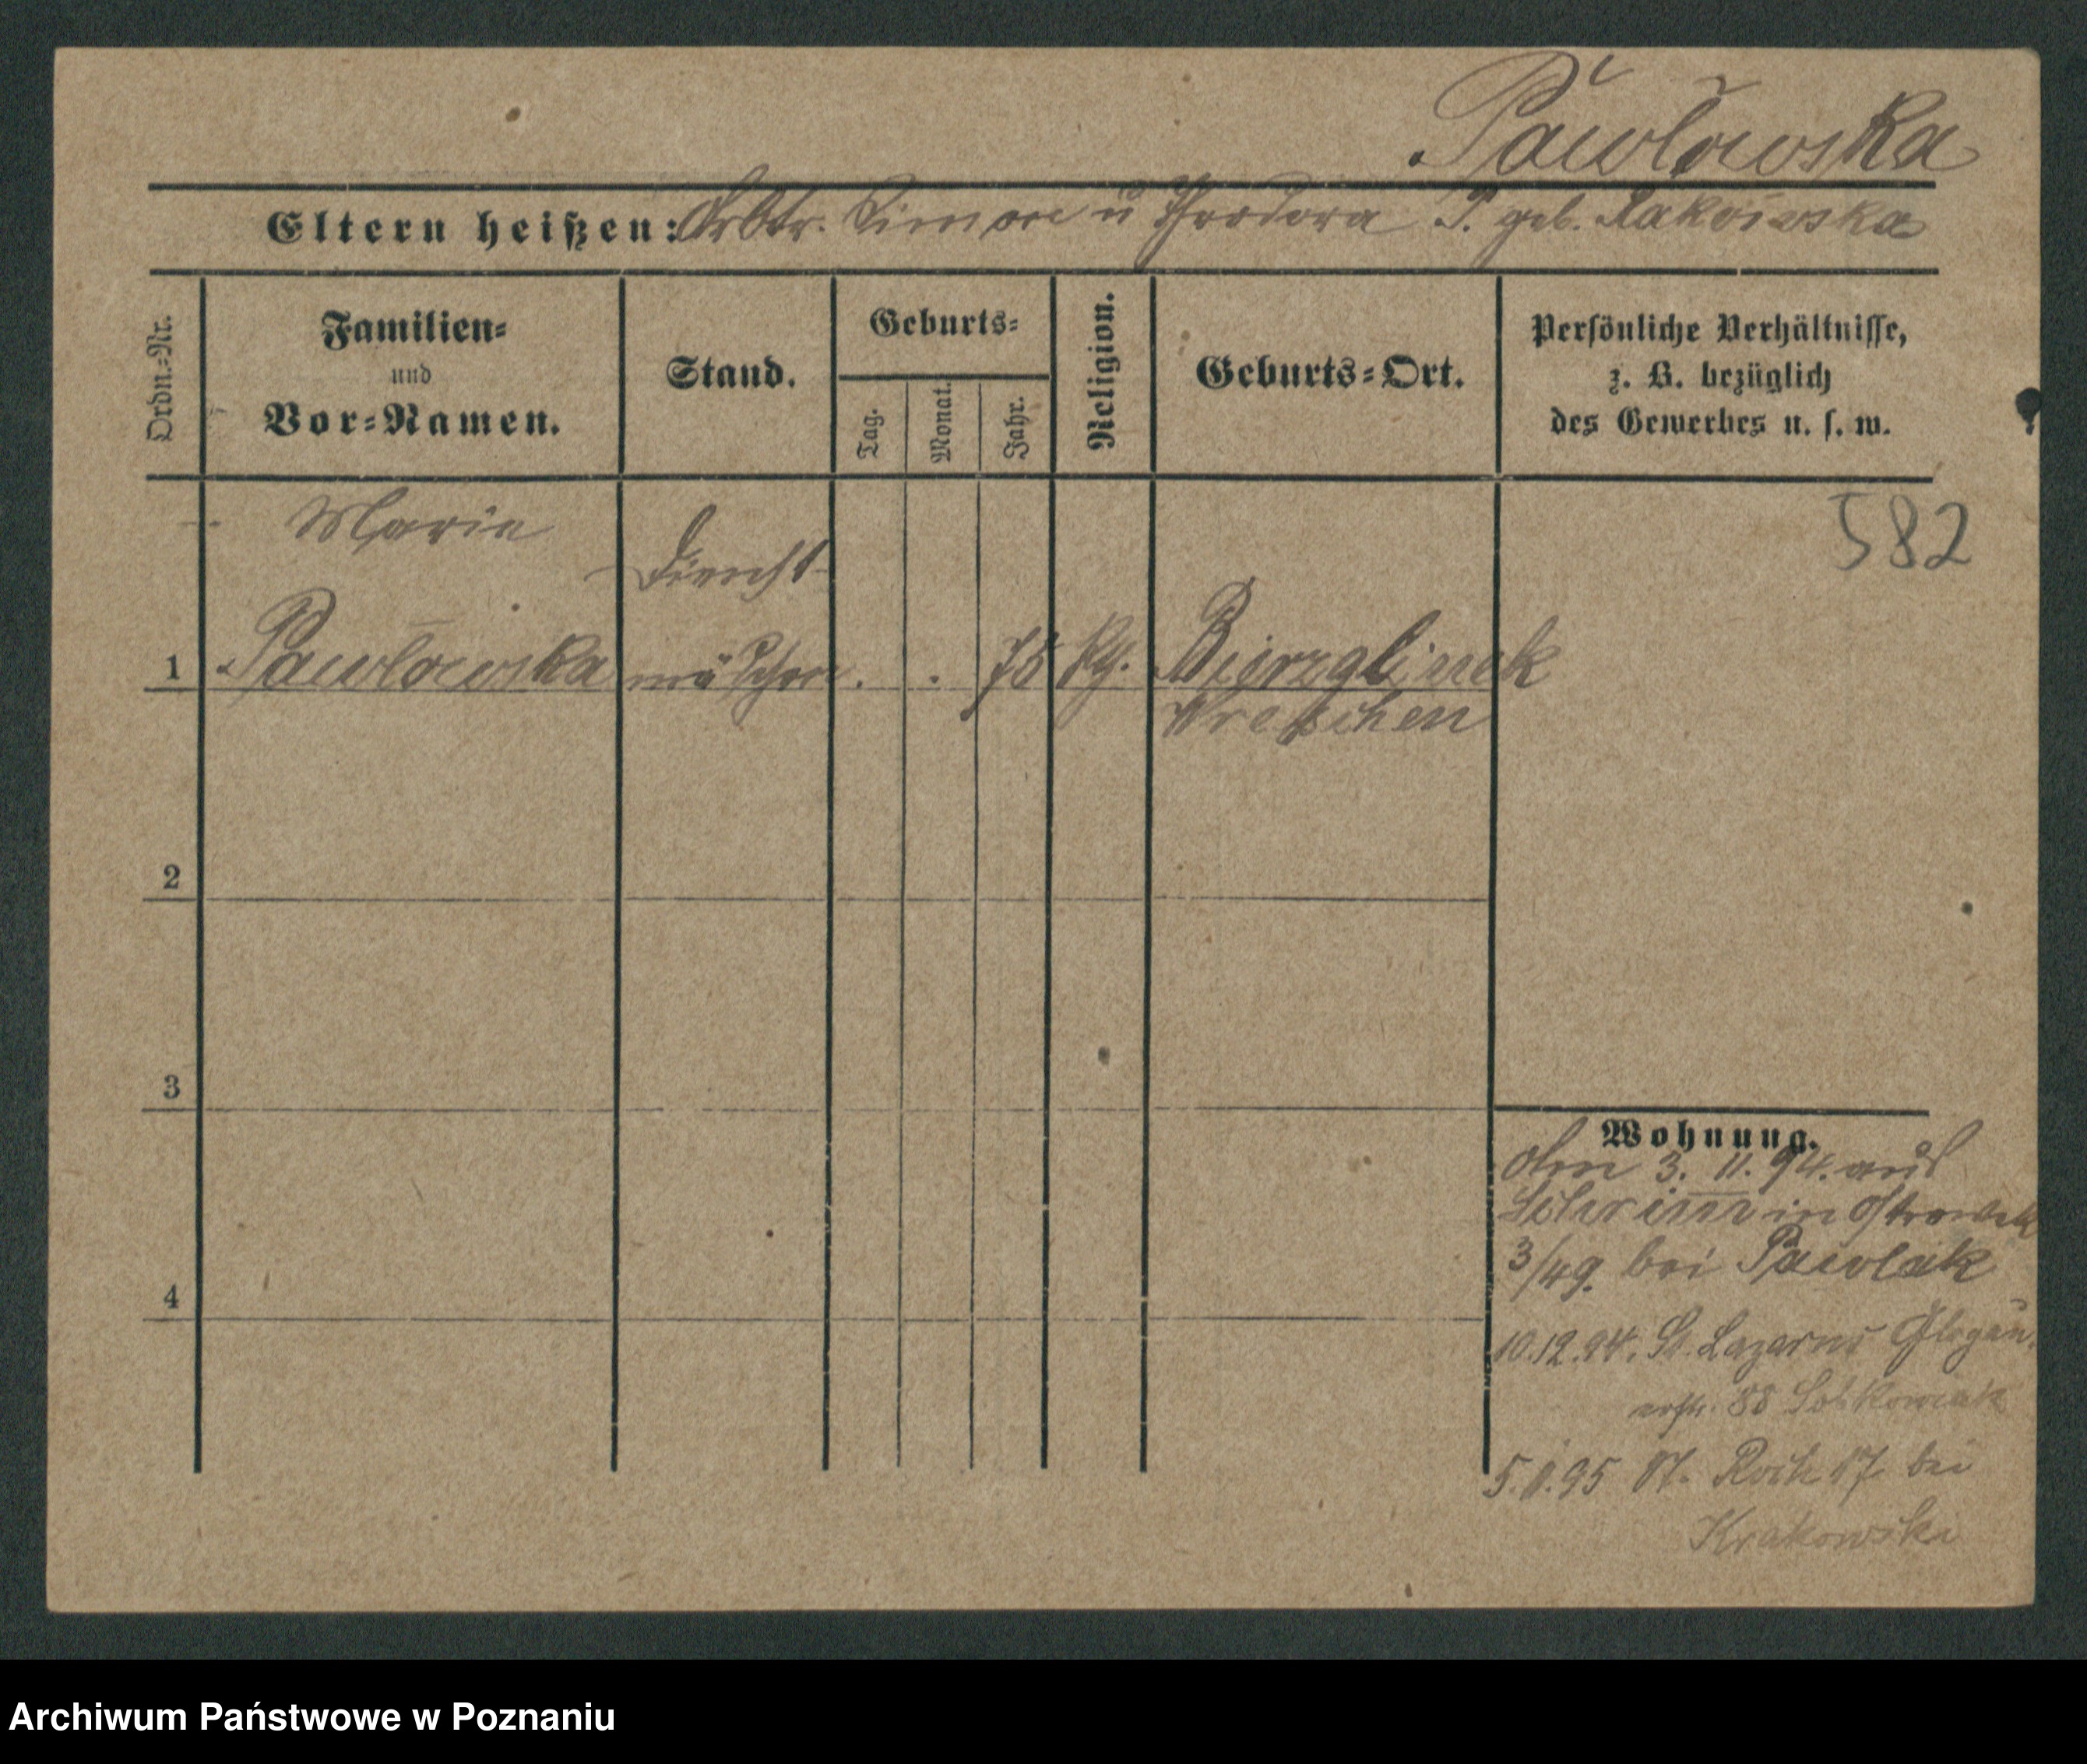 Pawlowska
Eltern heißen: Arbtr. Simon u Theodora P. geb. Rakowska
Ordn.-Nr.
Familien-
und
Vor-Namen.
Stand.
Geburts-
Tag.
Monat.
Jahr.
Religion.
Geburts-Ort.
Persönliche Verhältnisse,
z. B. bezüglich
des Gewerbes u. s. w.
582
Marie
Dienst-
1 Pawlowska mädchen . . 75 Bierzglinek
Wreschen
2
3
4
Wohnung.
3. 11. 94. aus
Schrimm in Ostrowek
3/49. bei Pawlak
10.12.94. St. Lazarus Glogau.
erstr. 88 Sobkowiak
95 St. Roch 17 bei
Krakowski
Archiwum Państwowe w Poznaniu